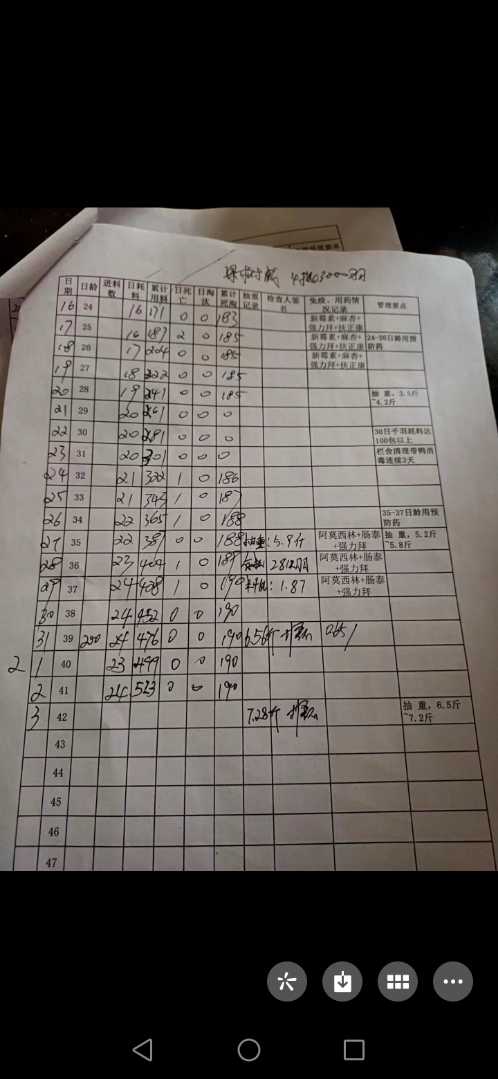 日期 日龄 进料数 日耗料 累计用料 日死亡 日淘汰 累计死淘 抽查记录 检查人签名 免疫、用药情况记录 管理要点
16 24 16 171 0 0 183 新霉素+麻杏+强力拜+扶正康
17 25 16 187 2 0 185 新霉素+麻杏+强力拜+扶正康 24-26日龄用预防药
18 26 17 204 0 0 185 新霉素+麻杏+强力拜+扶正康
19 27 18 222 0 0 185
20 28 19 241 0 0 185 抽重，3.5斤~4.2斤
21 29 20 261 0 0 0
22 30 20 281 0 0 0 30日千羽耗料达100包以上
23 31 20 301 0 0 0 拦舍清理带鸭消毒连续3天
24 32 21 322 1 0 186
25 33 21 343 1 0 187
26 34 22 365 1 0 188 35-37日龄用预防药
27 35 22 387 0 0 188 抽重：5.9斤 阿莫西林+肠泰+强力拜 抽重，5.2斤~5.8斤
28 36 23 404 1 0 189 阿莫西林+肠泰+强力拜
29 37 24 428 1 0 190 料比：1.87 阿莫西林+肠泰+强力拜
30 38 24 452 0 0 190
31 39 290 24 476 0 0 190 6.56斤
2 1 40 23 499 0 0 190
2 41 24 523 0 0 190
3 42 7.28斤 抽重，6.5斤~7.2斤
43
44
45
46
47